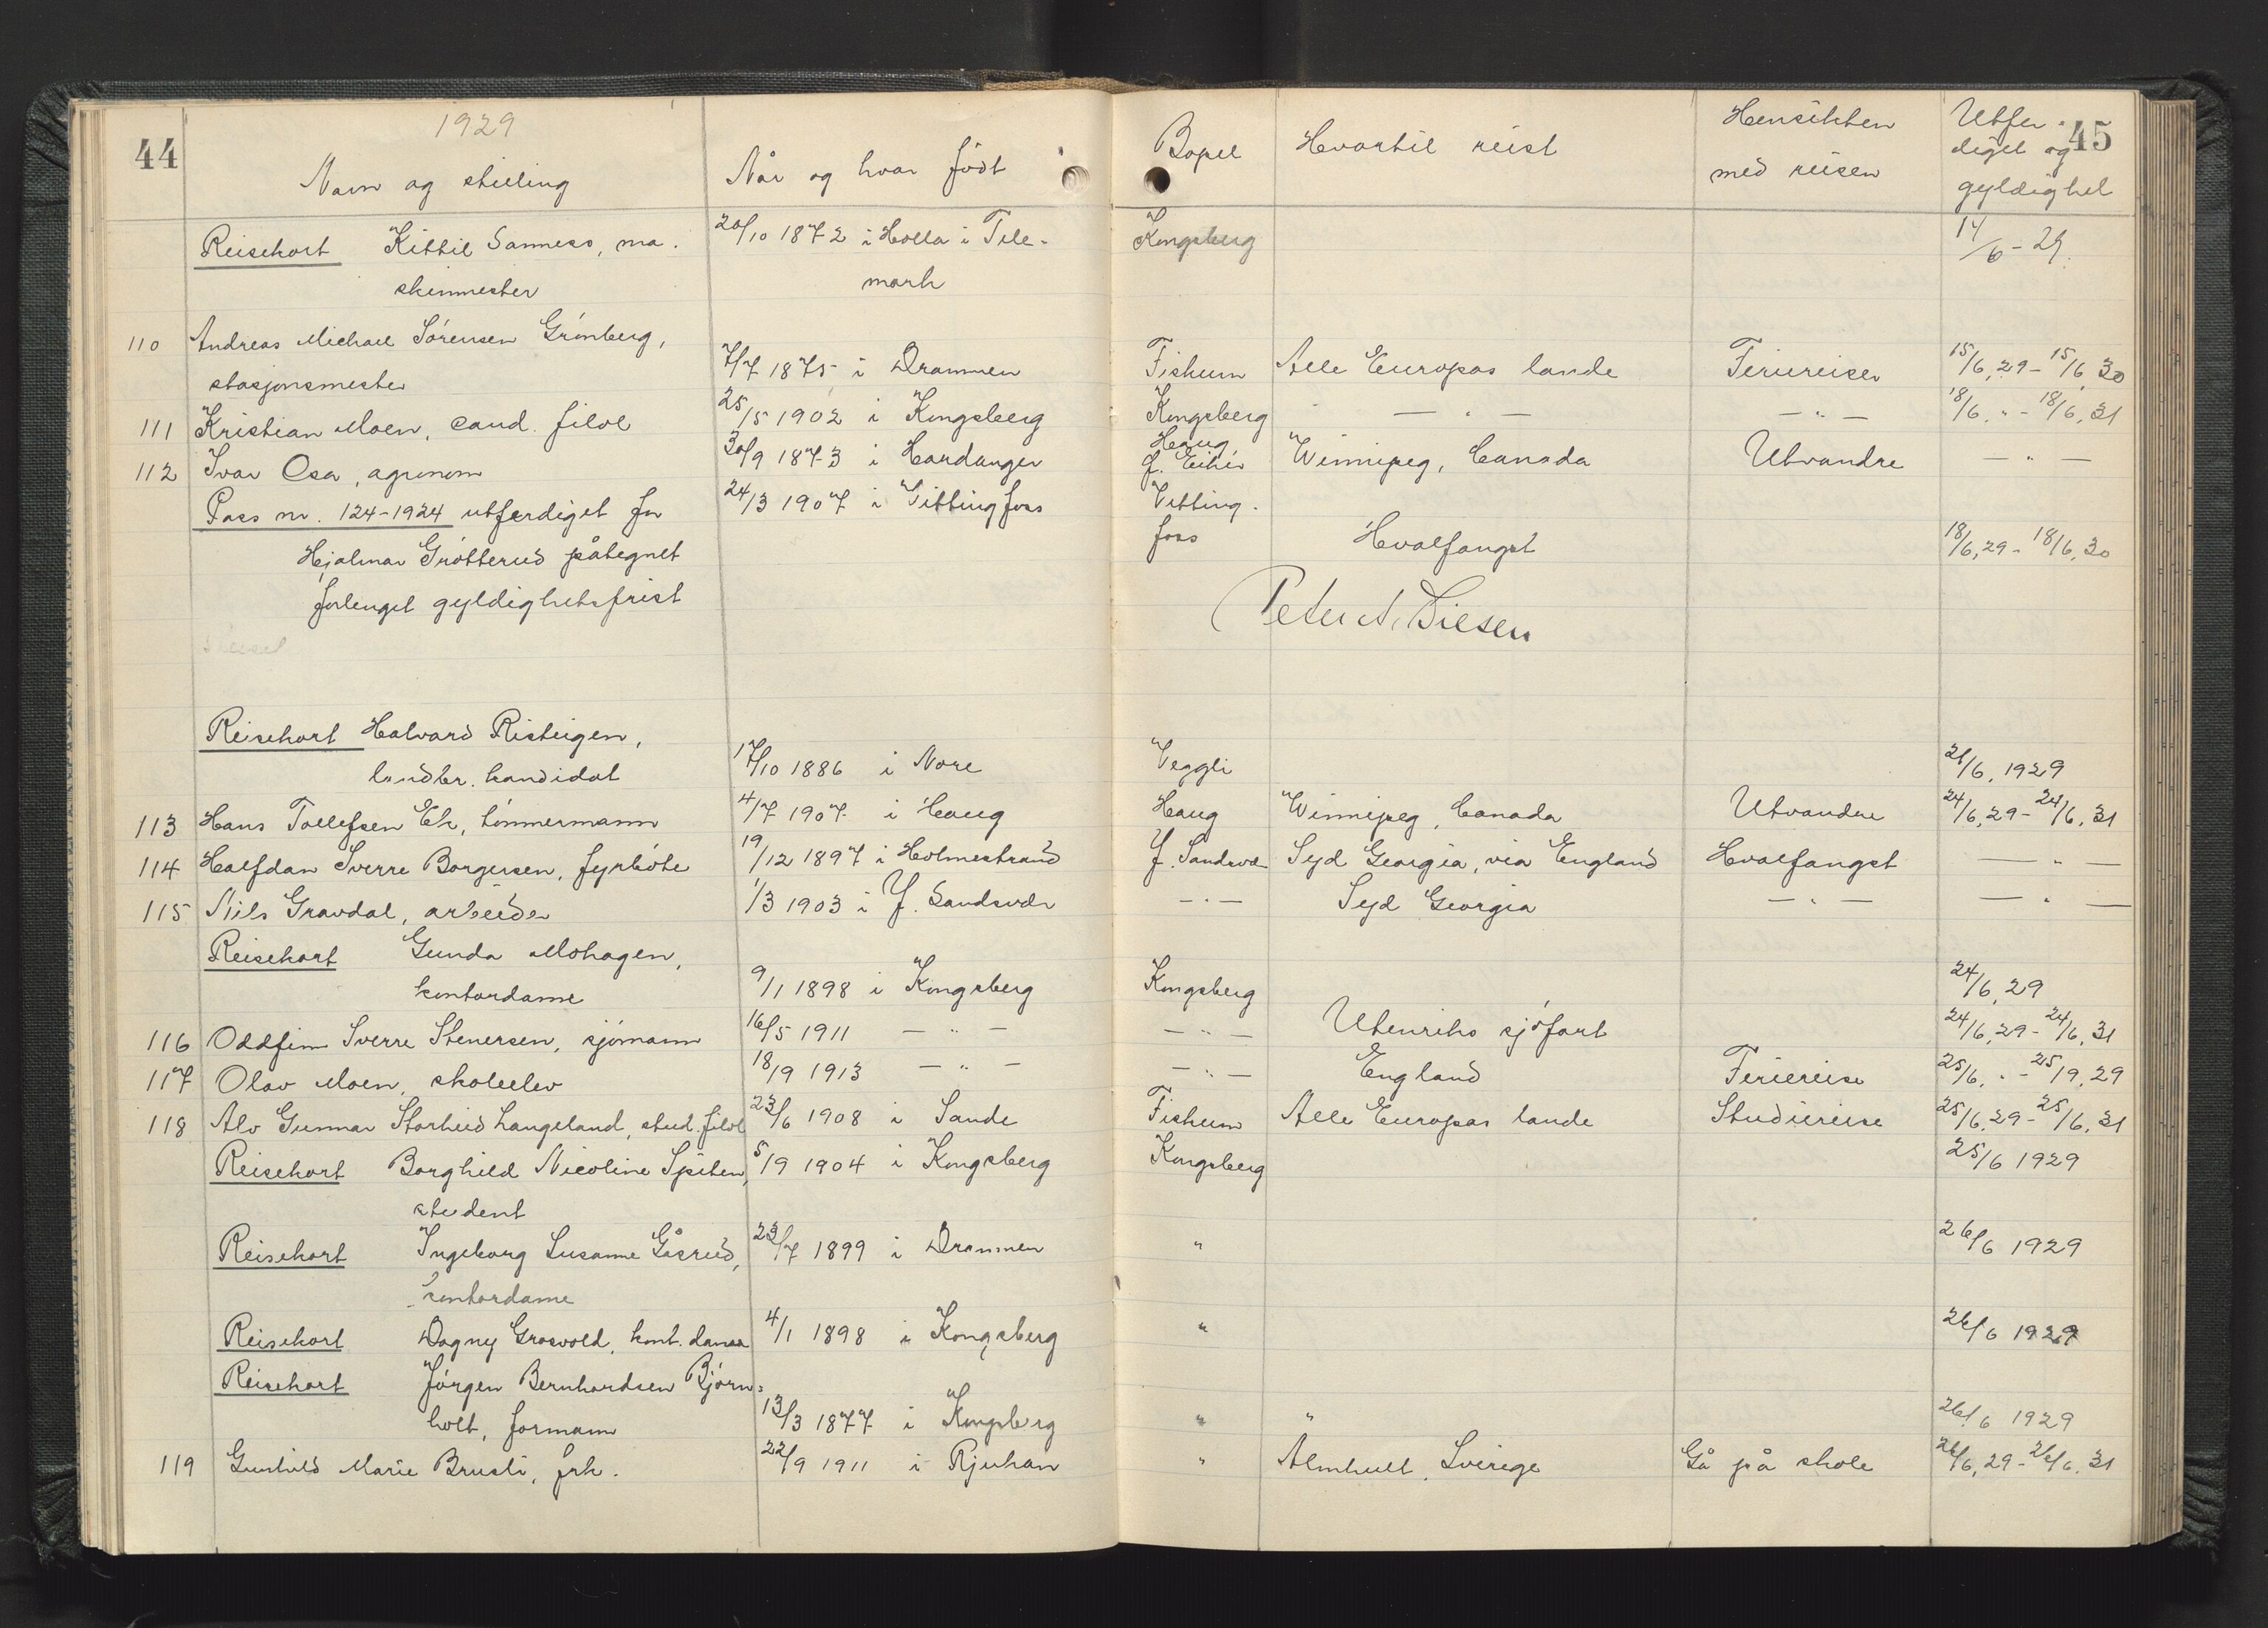 44
1929
Navn og stilling
Når og hvor født
Bopel
Hvortil reist
Hensikten
med reisen
Utfer-
diget og
gyldighet
45
Reisekort Kittil Sanness, ma-
20/10 1872 i Holla i Tele-
Kongsberg
14/6-29.
skinmester
mark
110 Andreas Michael Sørensen Grønberg,
stasjonsmester
7/7 1875 i Drammen
Fiskum
Alle Europas lande
Feriereiser
15/6, 29 - 15/6, 30
111 Kristian Moen, cand. filol
25/5 1902 i Kongsberg
Kongsberg
— " —
— " —
18/6. " - 18/6, 31
112 Ivar Osa, agronom
30/9 1873 i Hardanger
Haug
Ø. Eiker
Winnipeg, Canada
Utvandre
— " —
Pass nr. 124-1924 utferdiget for
24/3 1907 i Vittingfoss
Vitting-
foss
Hjalmar Grøtterud påtegnet
Hvalfangst
18/6, 29 - 18/6, 30
forlenget gyldighetsfrist
Reisekort Halvard Risteigen,
landbr. kandidat
17/10 1886 i Nore
Veggli
21/6, 1929
113 Hans Tollefsen Ek, tømmermann
4/7 1907 i Haug
Haug
Winnipeg, Canada
Utvandre
24/6, 29 - 24/6, 31
114 Halfdan Sverre Borgersen, fyrbøter
19/12 1897 i Holmestrand
Y. Sandsvær
Syd Georgia, via England
Hvalfangst
— " —
115 Nils Gravdal, arbeider
1/3 1903 i Y. Sandsvær
— " —
Syd Georgia
— " —
— " —
Reisekort Gunda Mohagen,
kontordame
9/1 1898 i Kongsberg
Kongsberg
24/6, 29
116 Oddfinn Sverre Stenersen, sjømann
16/5 1911 — " —
— " —
Utenriks sjøfart
24/6, 29 - 24/6, 31
117 Olav Moen, skoleelev
18/9 1913 — " —
— " —
England
Feriereise
25/6, " - 25/9, 29
118 Alv Gunnar Storhud Langeland, stud. filol
23/6 1908 i Sande
Fiskum
Alle Europas lande
Studiereise
25/6, 29 - 25/6, 31
Reisekort Borghild Nicoline Spiten,
5/9 1904 i Kongsberg
Kongsberg
25/6 1929
student
Reisekort Ingeborg Susanne Gåsrud,
23/7 1899 i Drammen
"
26/6 1929
kontordame
Reisekort Dagny Grosvold, kont. dame
4/1 1898 i Kongsberg
"
26/6 1929
Reisekort Jørgen Bernhardsen Bjørn-
holt, formann
13/3 1877 i Kongsberg
"
"
26/6 1929
119 Gunhild Marie Brusli, frk.
22/9 1911 i Rjukan
"
Almhult, Sverige
Gå på skole
26/6, 29 - 26/6, 31